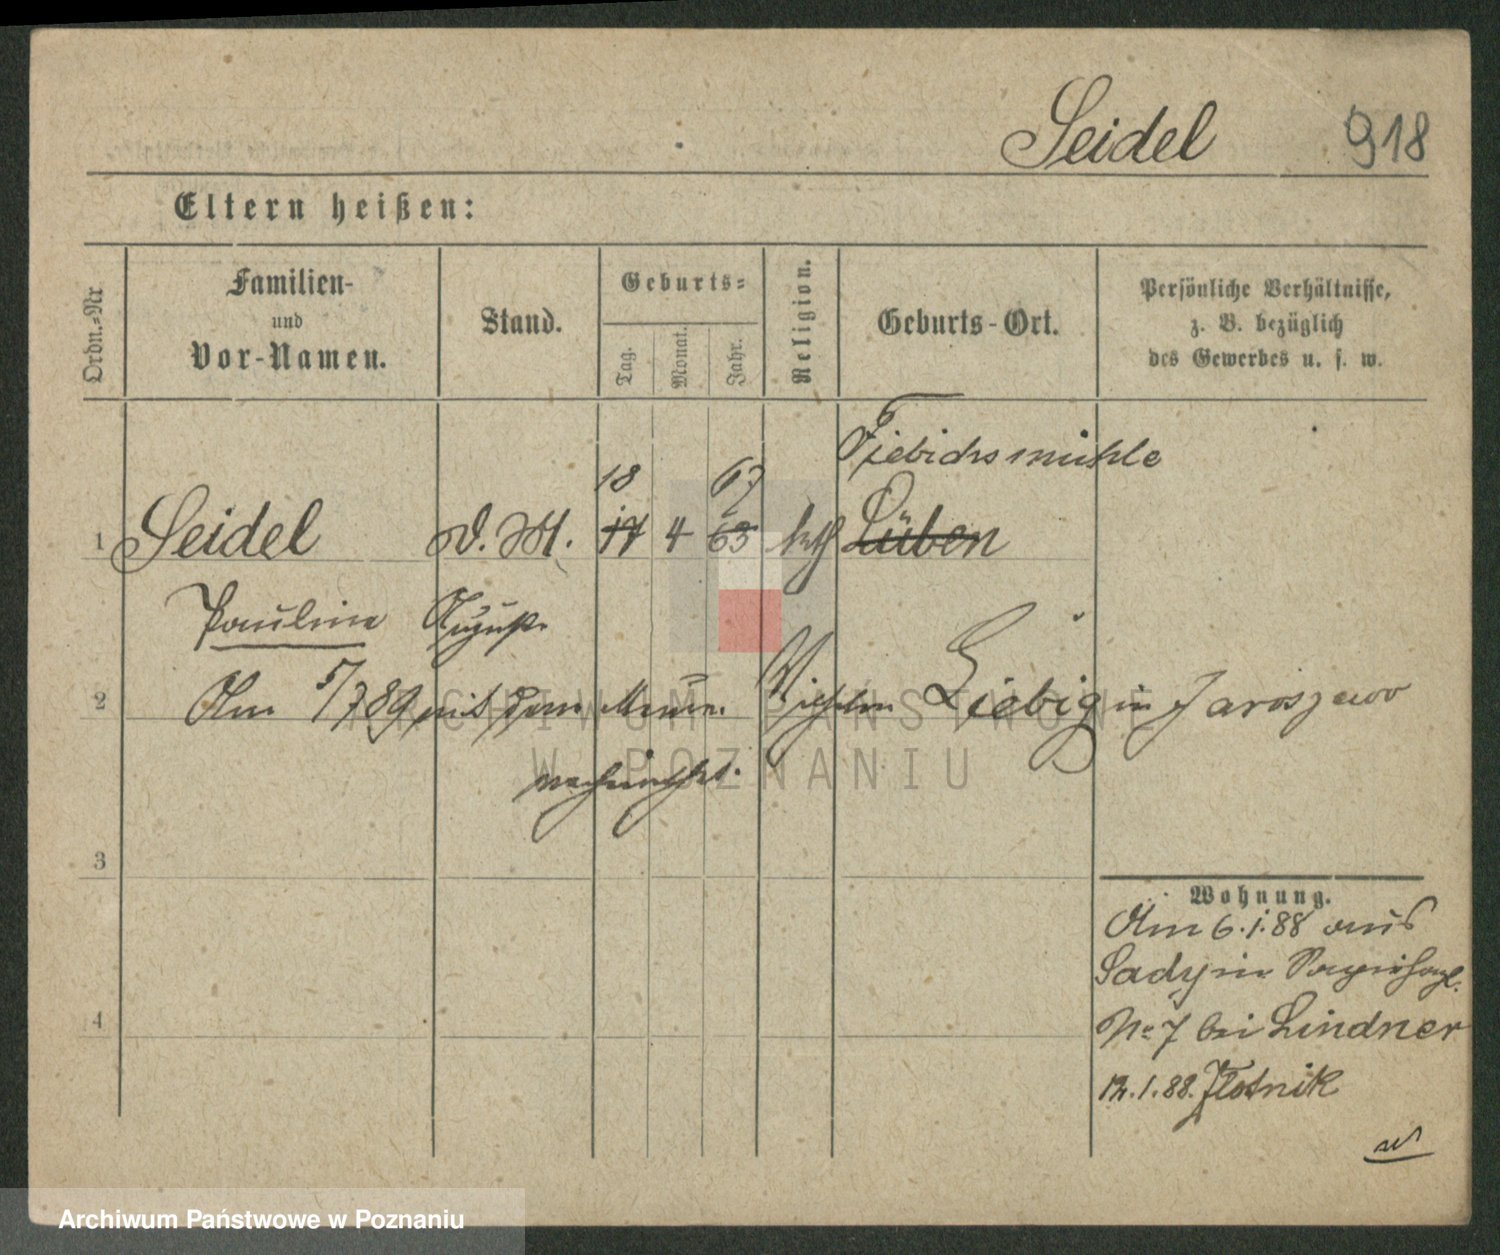 Seidel 918
Eltern heißen:
Ordn.-Nr
Familien-
und
Vor-Namen.
Stand.
Geburts-
Tag.
Monat.
Jahr.
Religion.
Geburts-Ort.
Persönliche Verhältnisse,
z. B. bezüglich
des Gewerbes u. s. w.
Fiebichsmühle
18 67
1 Seidel d. M. 17 4 63 kth Lüben
Pauline August
2 Am 5/7 89 mit dem Maurer Wilhelm Liebig in Jaroszewo
verheirathet.
3
Wohnung.
Am 6.1.88 aus
Sady in
No 7 bei Lindner
4
12.1.88. Zlotnik
ARCHIWUM PAŃSTWOWE
W POZNANIU
Archiwum Państwowe w Poznaniu